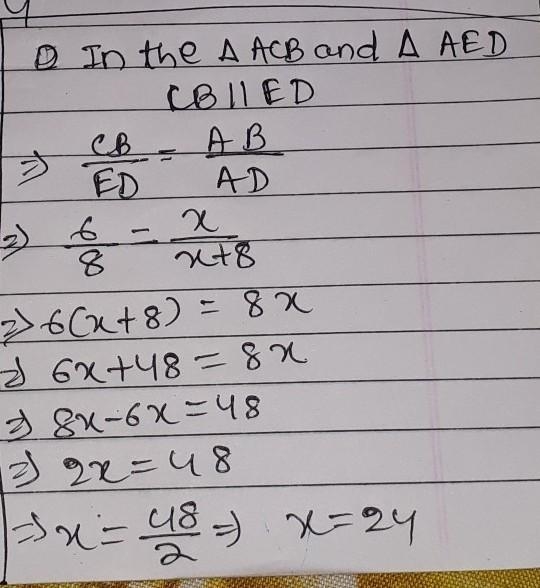 ① In the Δ ACB and Δ AED
CB || ED
⇒ CB/ED = AB/AD
⇒ 6/8 = x/x+8
⇒ 6(x+8) = 8x
⇒ 6x+48 = 8x
⇒ 8x-6x=48
⇒ 2x=48
⇒ x = 48/2 ⇒ x=24